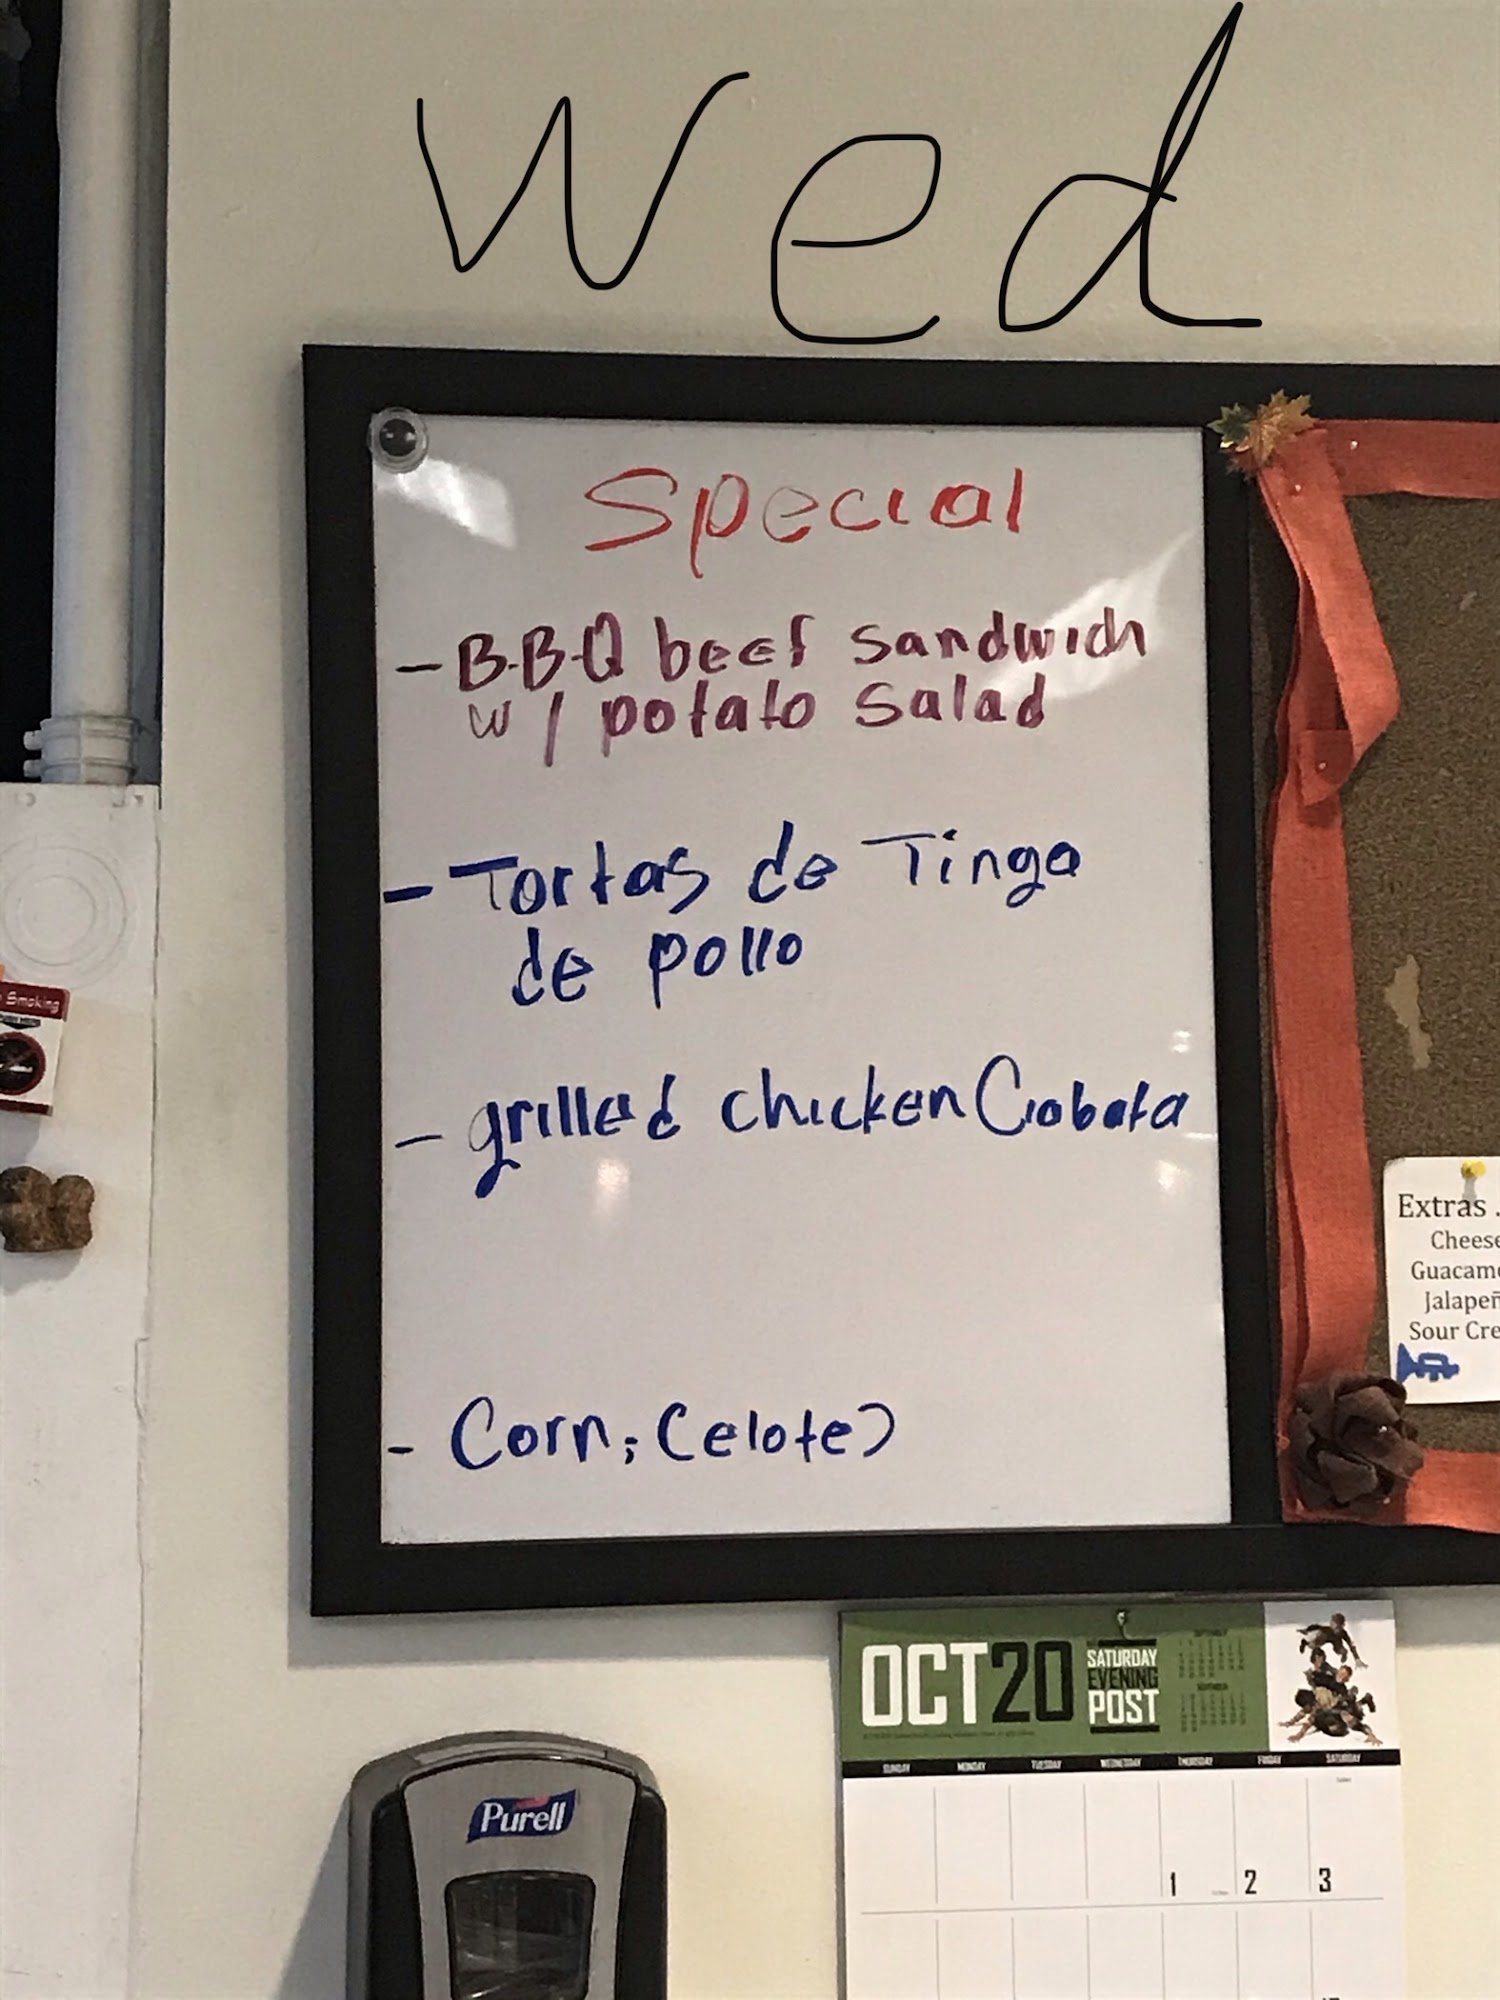 Wed
Special
- B-B-Q beef sandwich
w/ potato salad
- Tortas de Tinga
de pollo
- grilled chicken Ciabata
- Corn; (elote)
Smoking
Extras
Cheese
Guacamo
Jalapeñ
Sour Cre
OCT20
SATURDAY
EVENING
POST
SUNDAY MONDAY TUESDAY WEDNESDAY THURSDAY FRIDAY SATURDAY
1 2 3
Purell